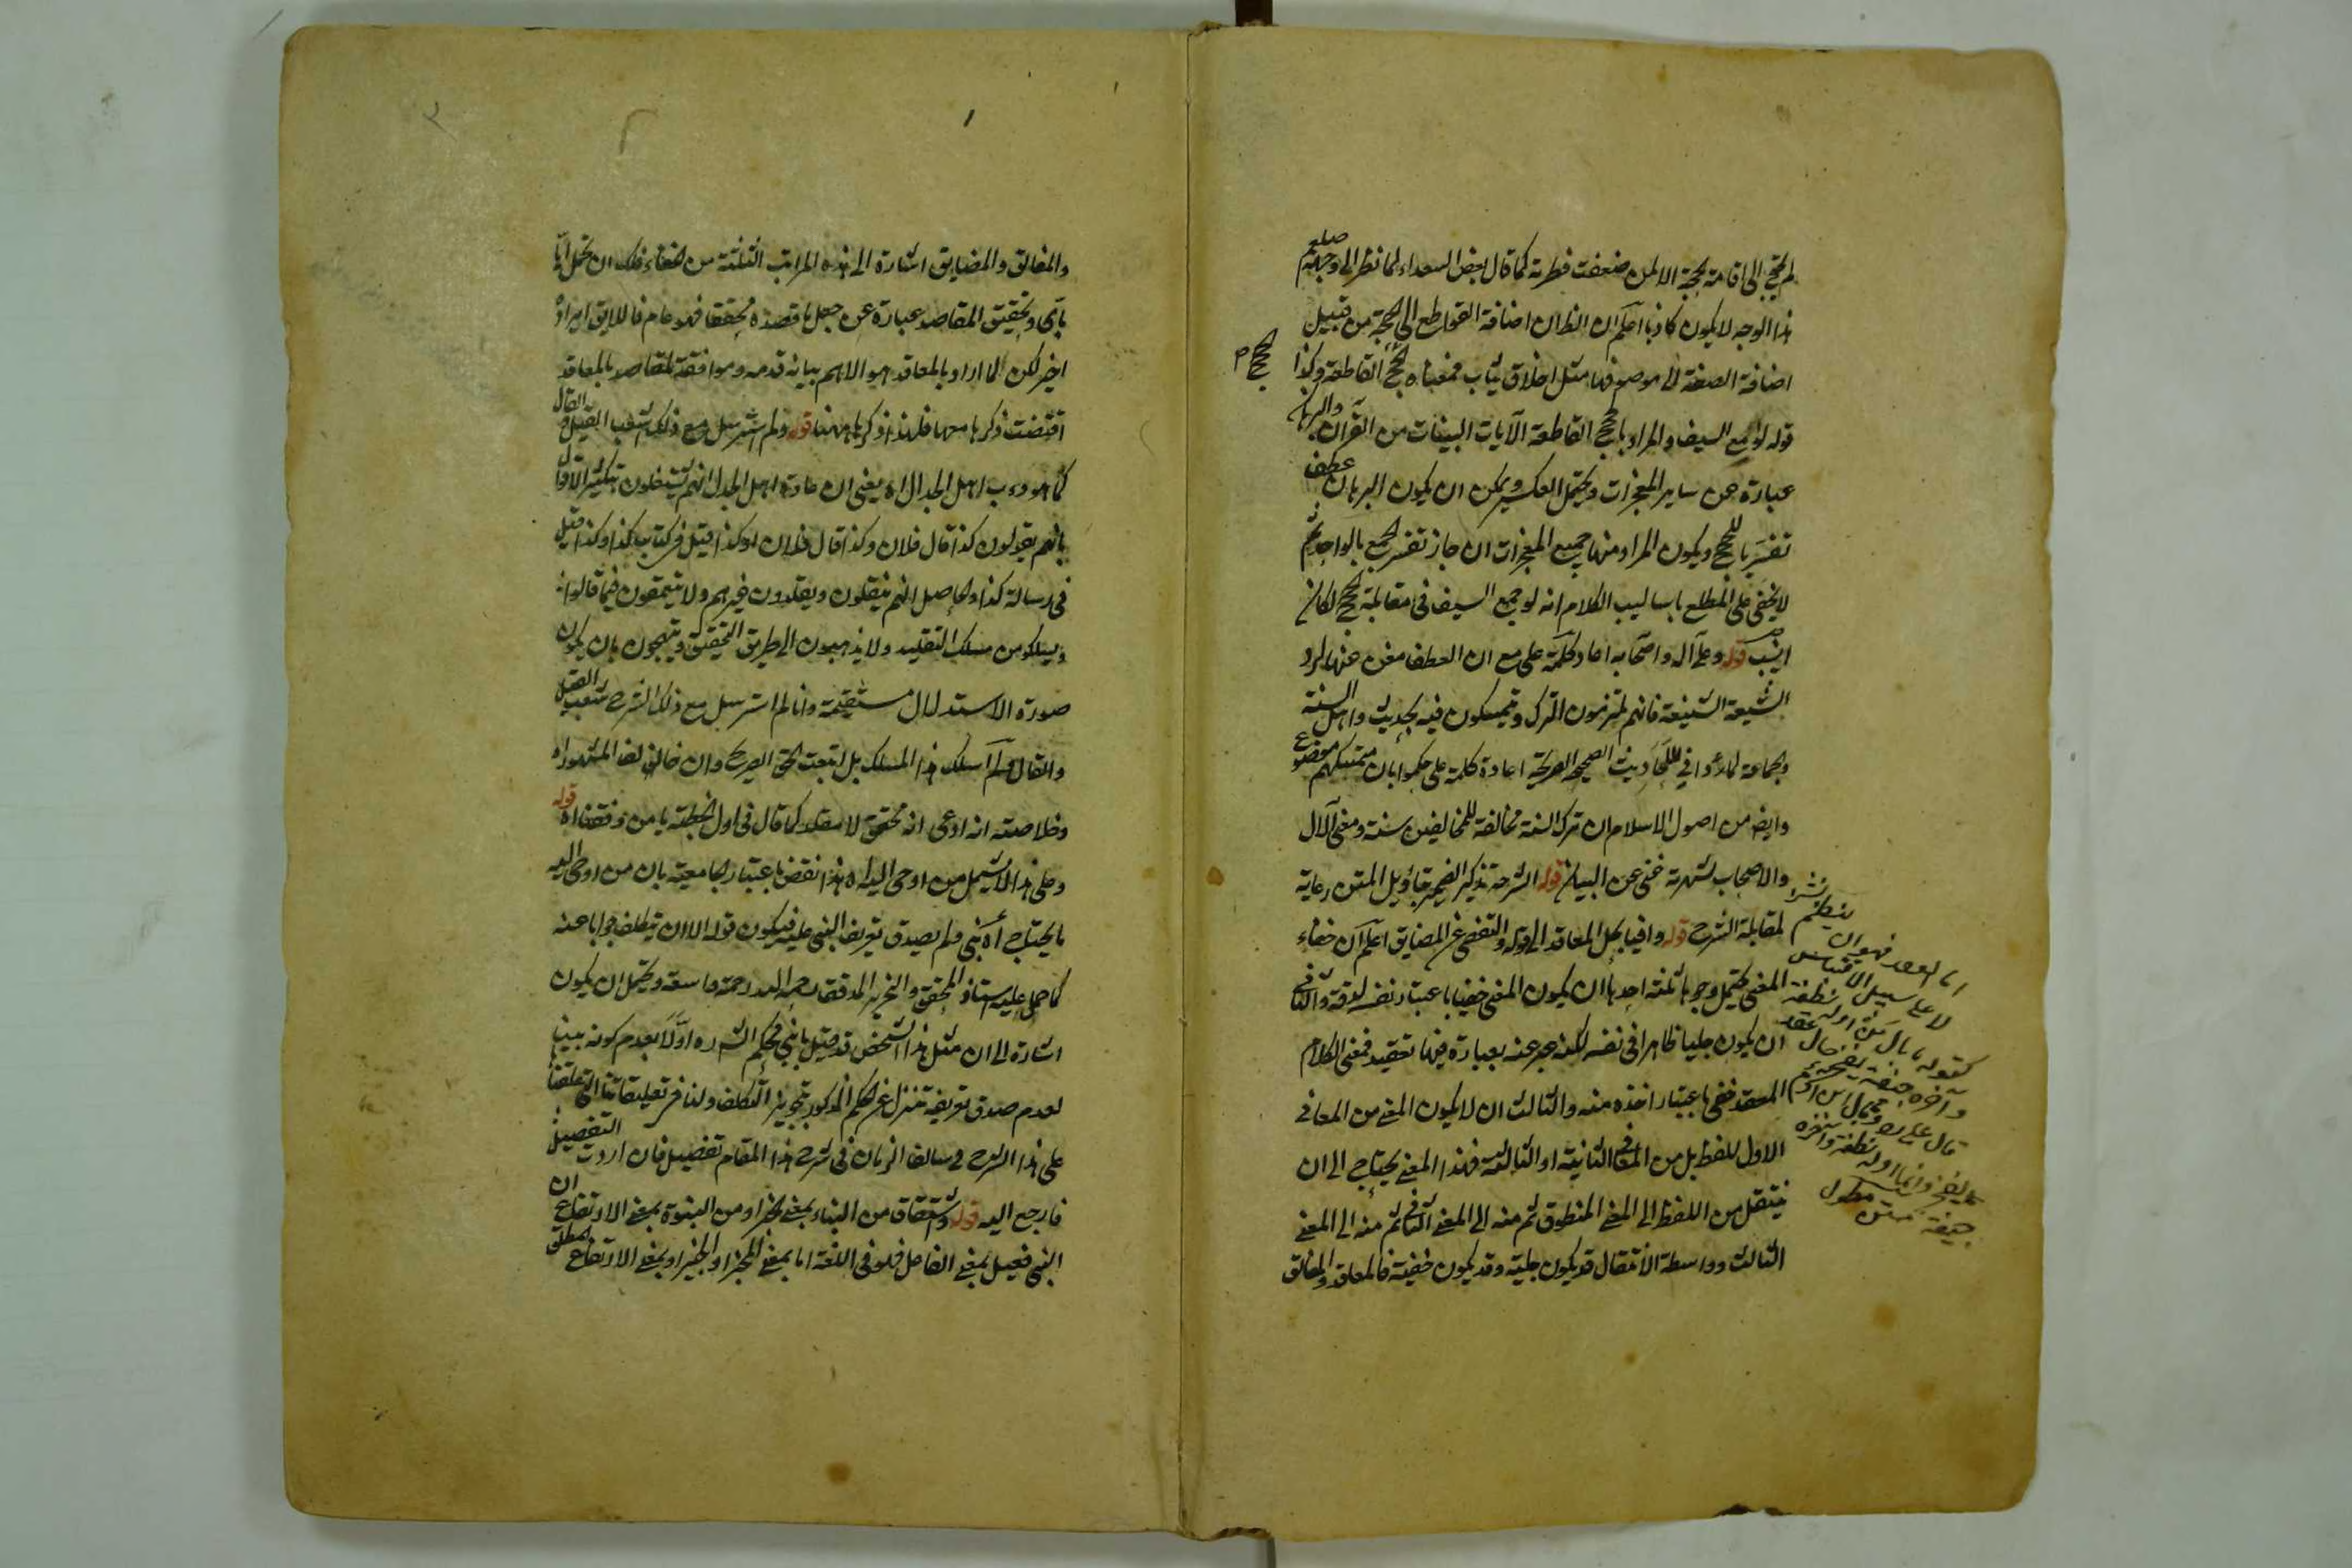 لم يحتج الى اقامة الحجة الا لمن ضعفت فطرته كما قال بعض السعداء لما نظر الى وجهه صلعم
هذا الوجه لا يكون كاذبا اعلم ان الظ ان اضافة القواطع الى الحجة من قبيل
اضافة الصفة الى موصوفها مثل اخلاق ثياب فمعناه الحجج القاطعة وكذا
قوله لوامع السيف والمراد بالحجج القاطعة الآيات البينات من القرآن والبرهان
عبارة عن ساير المعجزات ويحتمل العكس ويمكن ان يكون البرهان عطف
تفسير بالحجج ويكون المراد منها جميع المعجزات ان جاز تفسير الجمع بالواحد ثم
لا يخفى على المطلع باساليب الكلام انه لو جمع السيف فى مقابلة الحجج لكان
انسب قوله وعلى آله واصحابه اعاد كلمة على مع ان العطف مغن عنها لرد
الشيعة الشنيعة فانهم يلتزمون الترك ويتمسكون فيه بحديث واهل السنة
والجماعة لما رأوا فى الاحاديث الصحيحة الصريحة اعادة كلمة على حكموا بان متمسكهم موضوع
وايضا من اصول الاسلام ان ترك السنة مخالفة للمخالفين سنة ومعنى الآل
والاصحاب لشهرته غنى عن البيان قوله الشرحة تذكير الضمير بتأويل المتن رعاية
لمقابلة الشرح قوله وافيا بحل المعاقد الى قوله والتفصى عن المضايق اعلم ان خفاء
المعنى يحتمل وجوها ثلثة احدها ان يكون المعنى خفيا باعتبار نفسه لدقته والثانى
ان يكون جليا ظاهرا فى نفسه لكنه عبر عنه بعبارة فيها تعقيد فمعنى الكلام
المعقد خفى باعتبار اخذه منه والثالث ان لا يكون المعنى من المعانى
الاول للفظ بل من المعانى الثانية او الثالثة فهذا المعنى يحتاج الى ان
ينتقل من اللفظ الى المعنى المنطوق ثم منه الى المعنى الثانى ثم منه الى المعنى
الثالث وواسطة الانتقال قد يكون جلية وقد يكون خفية فالمعاقد والمغالق
الحجج م
اما العقد فهو ان ينظم نثر
لا على سبيل الاقتباس
كقوله ما بال من اوله نطفة
وآخره جيفة يفخر حال عقد
قال على رضه وما لابن آدم
والفخر وانما اوله نطفة وآخره
جيفة متن مطول
والمغالق والمضايق اشارة الى هذه المراتب الثلثة من الخفاء فلك ان تحمل ايا
باى وتحقيق المقاصد عبارة عن جعل ما قصده محققا فهو عام فاللايق ايراده
اخيرا لكن لما اراد بالمعاقد هو الاهم بيانه قدمه وموافقة المقاصد بالمعاقد
اقتضت ذكرها معها فلهذا ذكرها ههنا قوله ولم استرسل مع ذلك لشعب القيل والقال
كما هو دءب اهل الجدال اه يعنى ان عادة اهل الجدل انهم يشتغلون بتكثير الاقوال
بانهم يقولون كذا قال فلان وكذا قال فلان او كذا قيل فى كتاب كذا وكذا قيل
فى رسالة كذا والحاصل انهم ينقلون ويقلدون غيرهم ولا يتعمقون فيما قالوا
ويسلكون مسلك التقليد ولا يذهبون الى طريق التحقيق ويبتهجون بان يكون
صورة الاستدلال مستقيمة وانا لم استرسل مع ذلك الشرح شعب القيل
والقال ولم اسلك هذا المسلك بل اتبعت الحق الصريح وان خالف المشهور اه
وخلاصته انه ادعى انه محقق لا مقلد كما قال فى اول الخطبة يا من وفقنا اه قوله
وعلى هذا لا يشمل من اوحى اليه اه هذا نقض باعتبار الجامعية بان من اوحى اليه
ما يحتاج اه نبى ولم يصدق تعريف النبى عليه فيكون قوله الا ان يتكلف جوابا عنه
كما حمل عليه استاذ المحقق والنحرير المدقق رحمه الله رحمة واسعة ويحتمل ان يكون
اشارة الى ان مثل هذا الشخص قد قيل بانه نبى فحكم الش ره اولا بعدم كونه نبيا
لعدم صدق تعريفه تنزل عن الحكم المذكور بتجويز التكلف ولنا فى تعليقاتنا التى علقنا
على هذا الشرح فى سالف الزمان فى شرح هذا المقام تفصيل فان اردت التفصيل
فارجع اليه قوله واشتقاق من النباء بمعنى الخبر او من النبوة بمعنى الارتفاع ان
النبى فعيل بمعنى الفاعل فهو فى اللغة اما بمعنى المخبر او الخبير او بمعنى الارتفاع المطلق